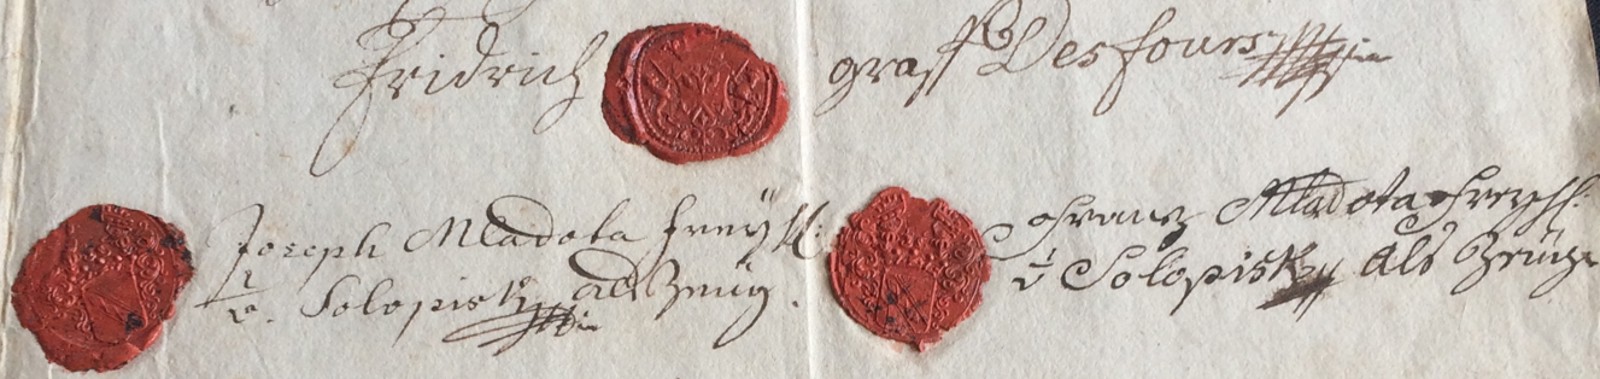 Fridrich graff Desfours
Joseph Mladota freÿH:
v. Solopisk als Zeüg.
Franz Mladota Freyh:
v Solopisk als Zeüge